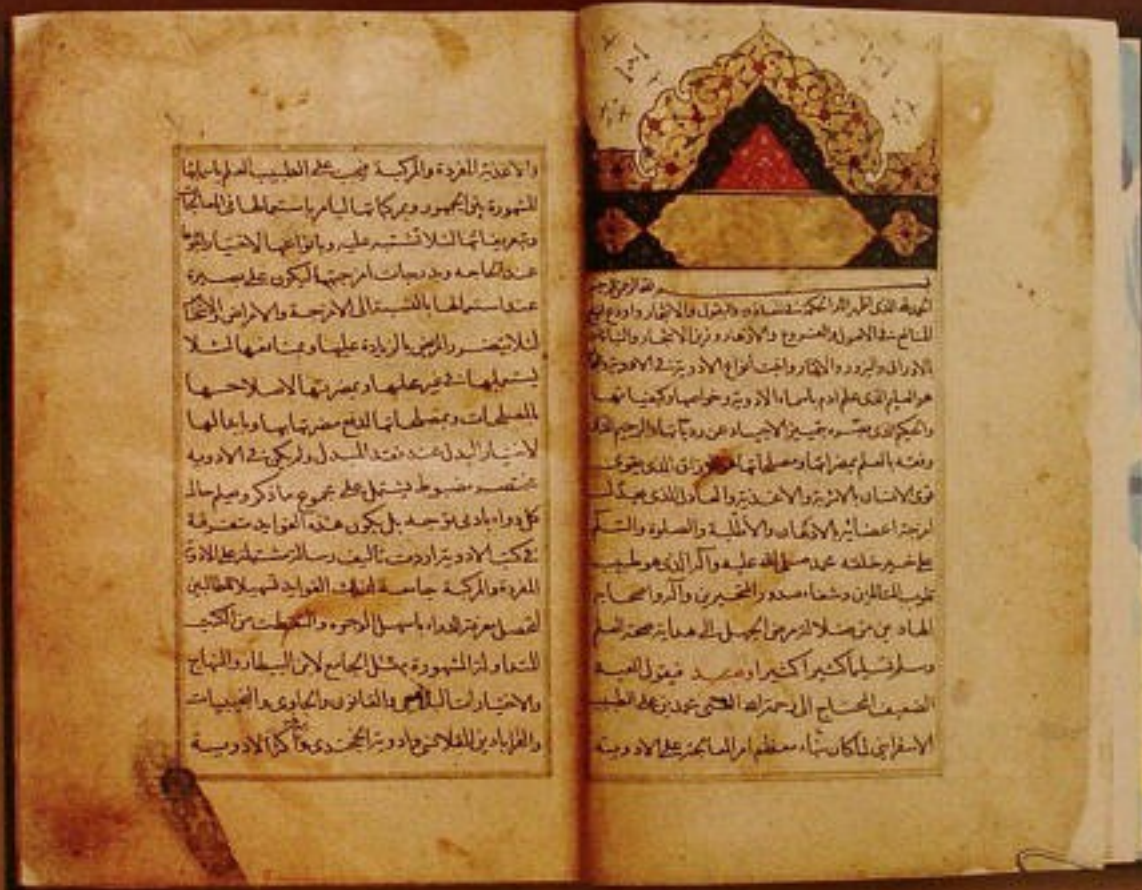 بسم الله الرحمن الرحيم
الحمد لله الذى اظهر اثار الحكمة فى والبقول والاثمار واودع
المنافع فى الاصول والفروع والازهار وزين الاشجار والنبات
بالاوراق والبزور والاثمار انواع الادوية فى الاودية
هو العليم الذى علم ادم باسماء الادوية وخواصها وكيفياتها
والحكيم الذى تمييز الاجياد عن الرحيم الذى
وفقه بالعلم بمضراتها ومصلحاتها هو الرزاق الذى يقوى
قوى الانسان بالاشربة والاغذية والعادل الذى يعدل
امزجة اعضائه بالادهان والاطلية والصلوة والسلم
على خير خلقه محمد صلى الله عليه وآله الذى هو طبيب
قلوب المتالمين وشفاء صدور المتحيرين وآله واصحابه
الهادين من ضلالة مرض الجهل الى هداية صحة العلم
وسلم تسليما كثيرا كثيرا وبعد فيقول العبد
الضعيف المحتاج الى رحمة الله الغنى محمد بن على الطبيب
الاسفراينى لما كان بناء معظم امر المعالجة على الادوية
والاغذية المفردة والمركبة فيجب على الطبيب العلم باسمائها
المشهورة بين الجمهور وبمركباتها ليامر باستعمالها فى المعالجات
وبتعريفاتها لئلا تشتبه عليه وبانواعها لاختيار
عند الحاجة وبدرجات امزجتها ليكون على بصيرة
عند استعمالها بالنسبة الى الامزجة والامراض
لئلا يتضرر المرضى بالزيادة عليها وبمنافعها لئلا
يستعملها فى غير محلها وبمضرتها لاصلاحها
بالمصلحات وبمصلحاتها لدفع مضرتها بها وبابدالها
لاختيار البدل عند فقد المبدل ولم يكن فى الادوية
مختصر مضبوط يشتمل على مجموع ما ذكر ويعلم حال
كل دواء بادنى توجه بل يكون هذه الفوايد متفرقة
فى كتب الادوية اردت تاليف رسالة مشتملة على الادوية
المفردة والمركبة جامعة لهذه الفوايد تسهيلا للطالبين
لتحصل معرفة الدواء باسهل الوجوه والتقطت من الكتب
المتداولة المشهورة مثل الجامع لابن البيطار والمنهاج
والاختيارات البديعى والقانون والحاوى والنجيبيات
والقرابادين القلانسى وادوية الخجندى واكثر الادوية